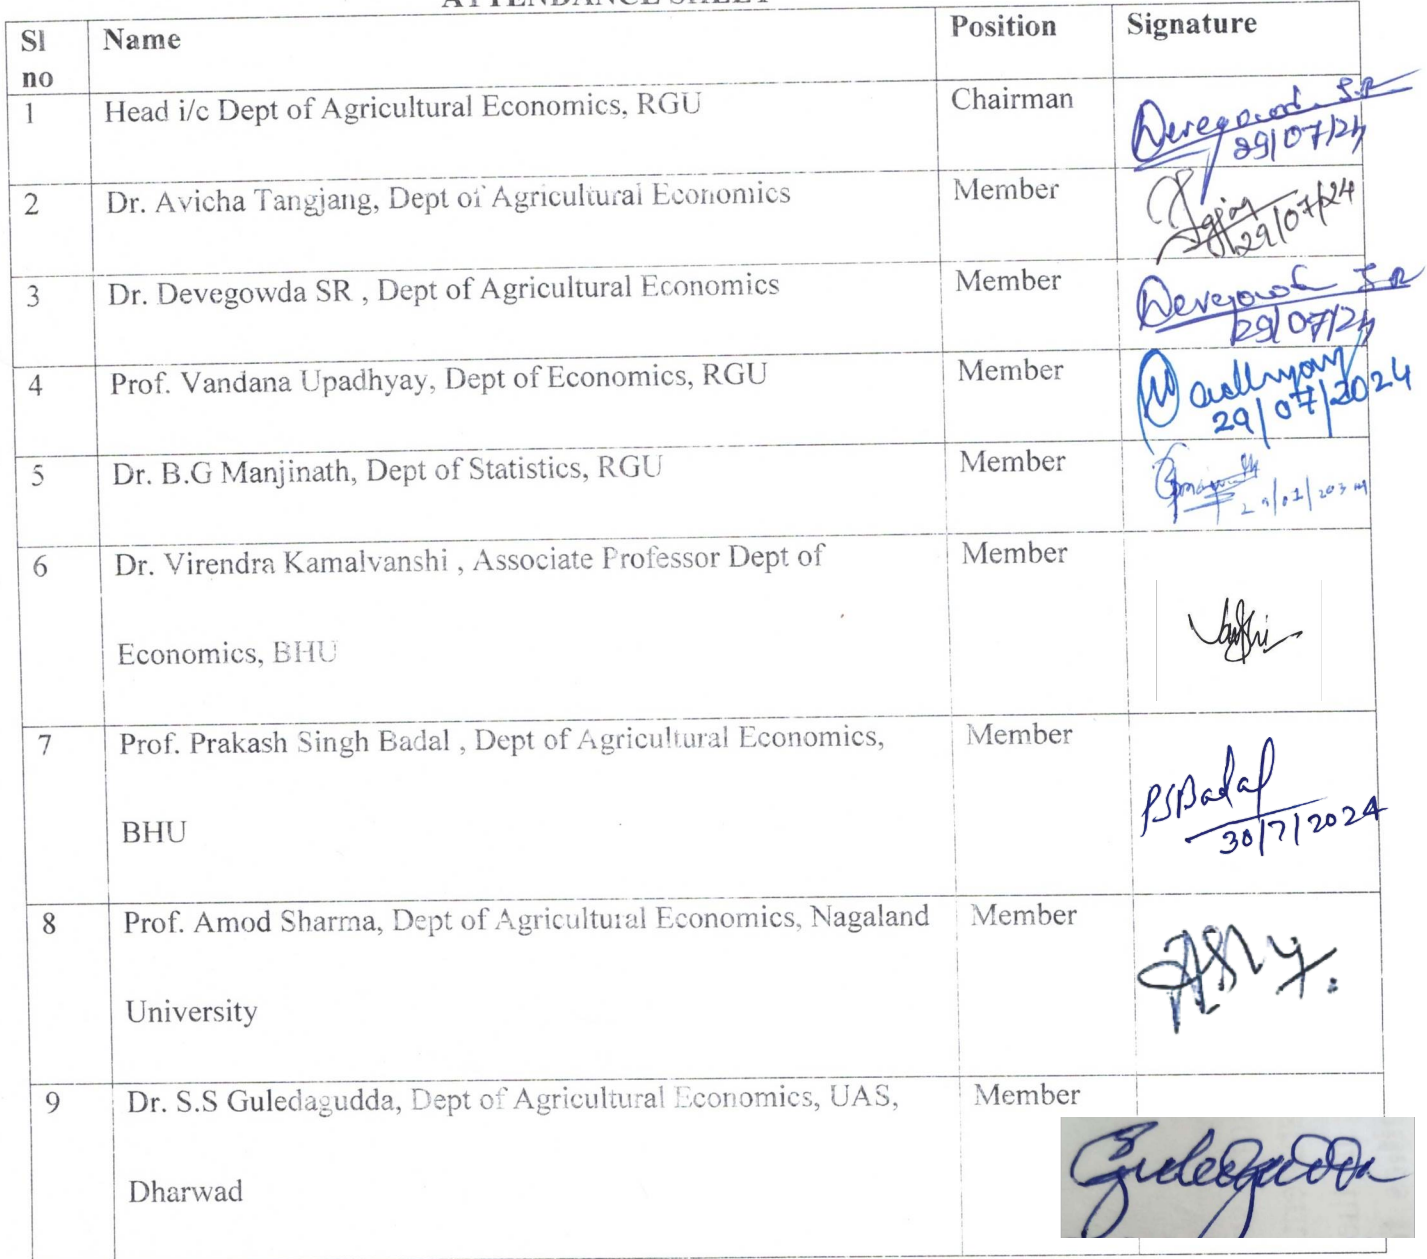 ATTENDANCE SHEET
Sl no Name Position Signature
1 Head i/c Dept of Agricultural Economics, RGU Chairman Devegowda S.R
29/07/24
2 Dr. Avicha Tangjang, Dept of Agricultural Economics Member
29/07/24
3 Dr. Devegowda SR , Dept of Agricultural Economics Member Devegowda S R
29/07/24
4 Prof. Vandana Upadhyay, Dept of Economics, RGU Member
29/07/2024
5 Dr. B.G Manjinath, Dept of Statistics, RGU Member
6 Dr. Virendra Kamalvanshi , Associate Professor Dept of Member
Economics, BHU
7 Prof. Prakash Singh Badal , Dept of Agricultural Economics, Member
BHU PSBadal
30/7/2024
8 Prof. Amod Sharma, Dept of Agricultural Economics, Nagaland Member
University
9 Dr. S.S Guledagudda, Dept of Agricultural Economics, UAS, Member
Dharwad Guledagudda